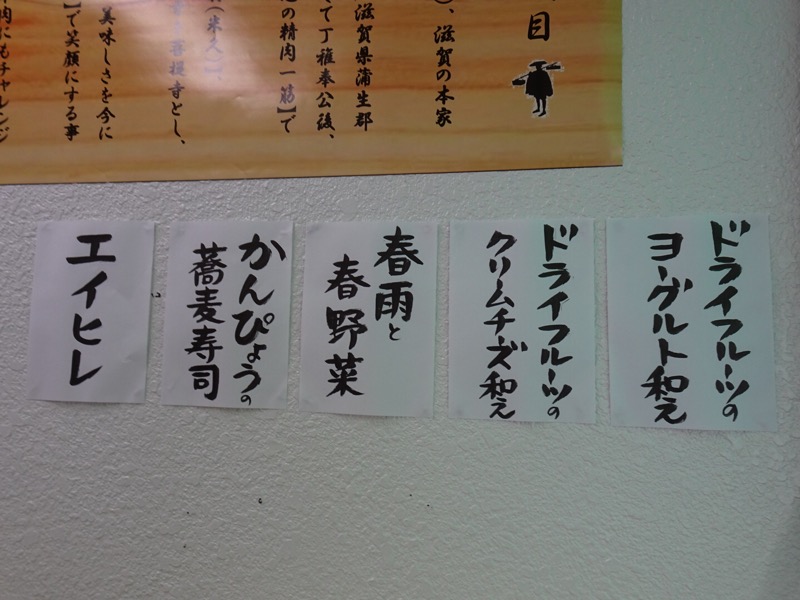 目
、滋賀の本家
滋賀県蒲生郡
て丁稚奉公後、
の精肉一筋】で
(米久)】
菩提寺とし、
美味しさを今に
】で笑顔にする事
肉にもチャレンジ
ドライフルーツの
ヨーグルト和え
ドライフルーツの
クリームチーズ和え
春雨と
春野菜
かんぴょうの
蕎麦寿司
エイヒレ